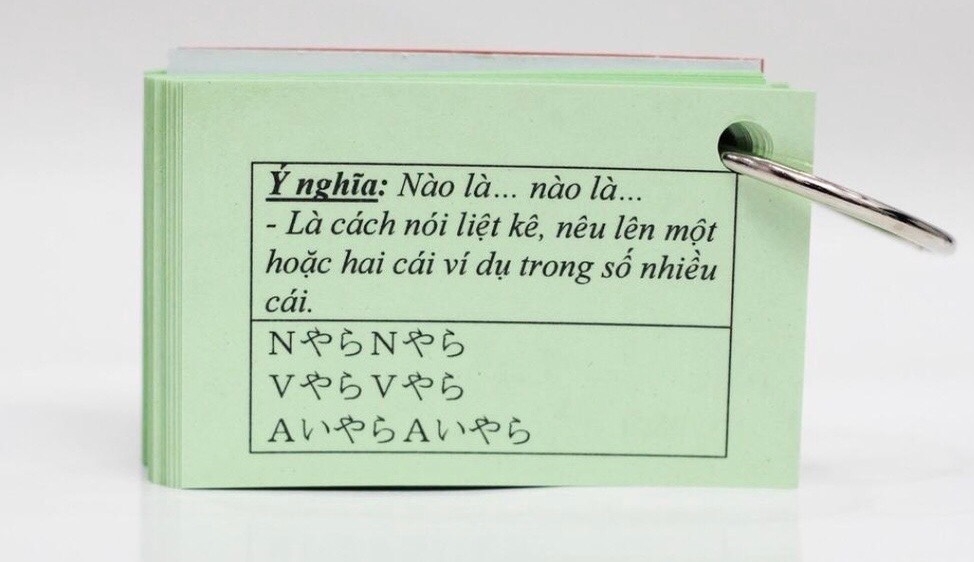 Ý nghĩa: Nào là... nào là...
- Là cách nói liệt kê, nêu lên một
hoặc hai cái ví dụ trong số nhiều
cái.
NやらNやら
VやらVやら
AいやらAいやら